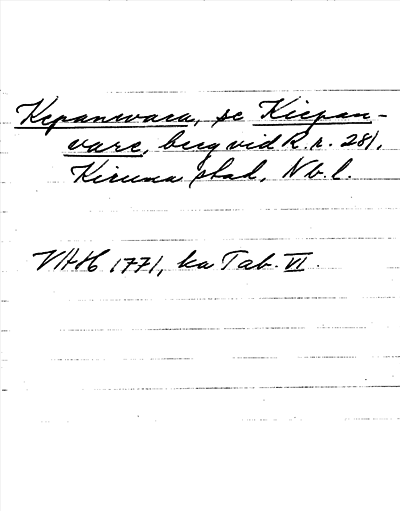 Kepanwara, se Kiepan-
vare, berg vid R.r. 281,
Kiruna stad, Nb.l.
VHH 1771, ka Tab. VI.